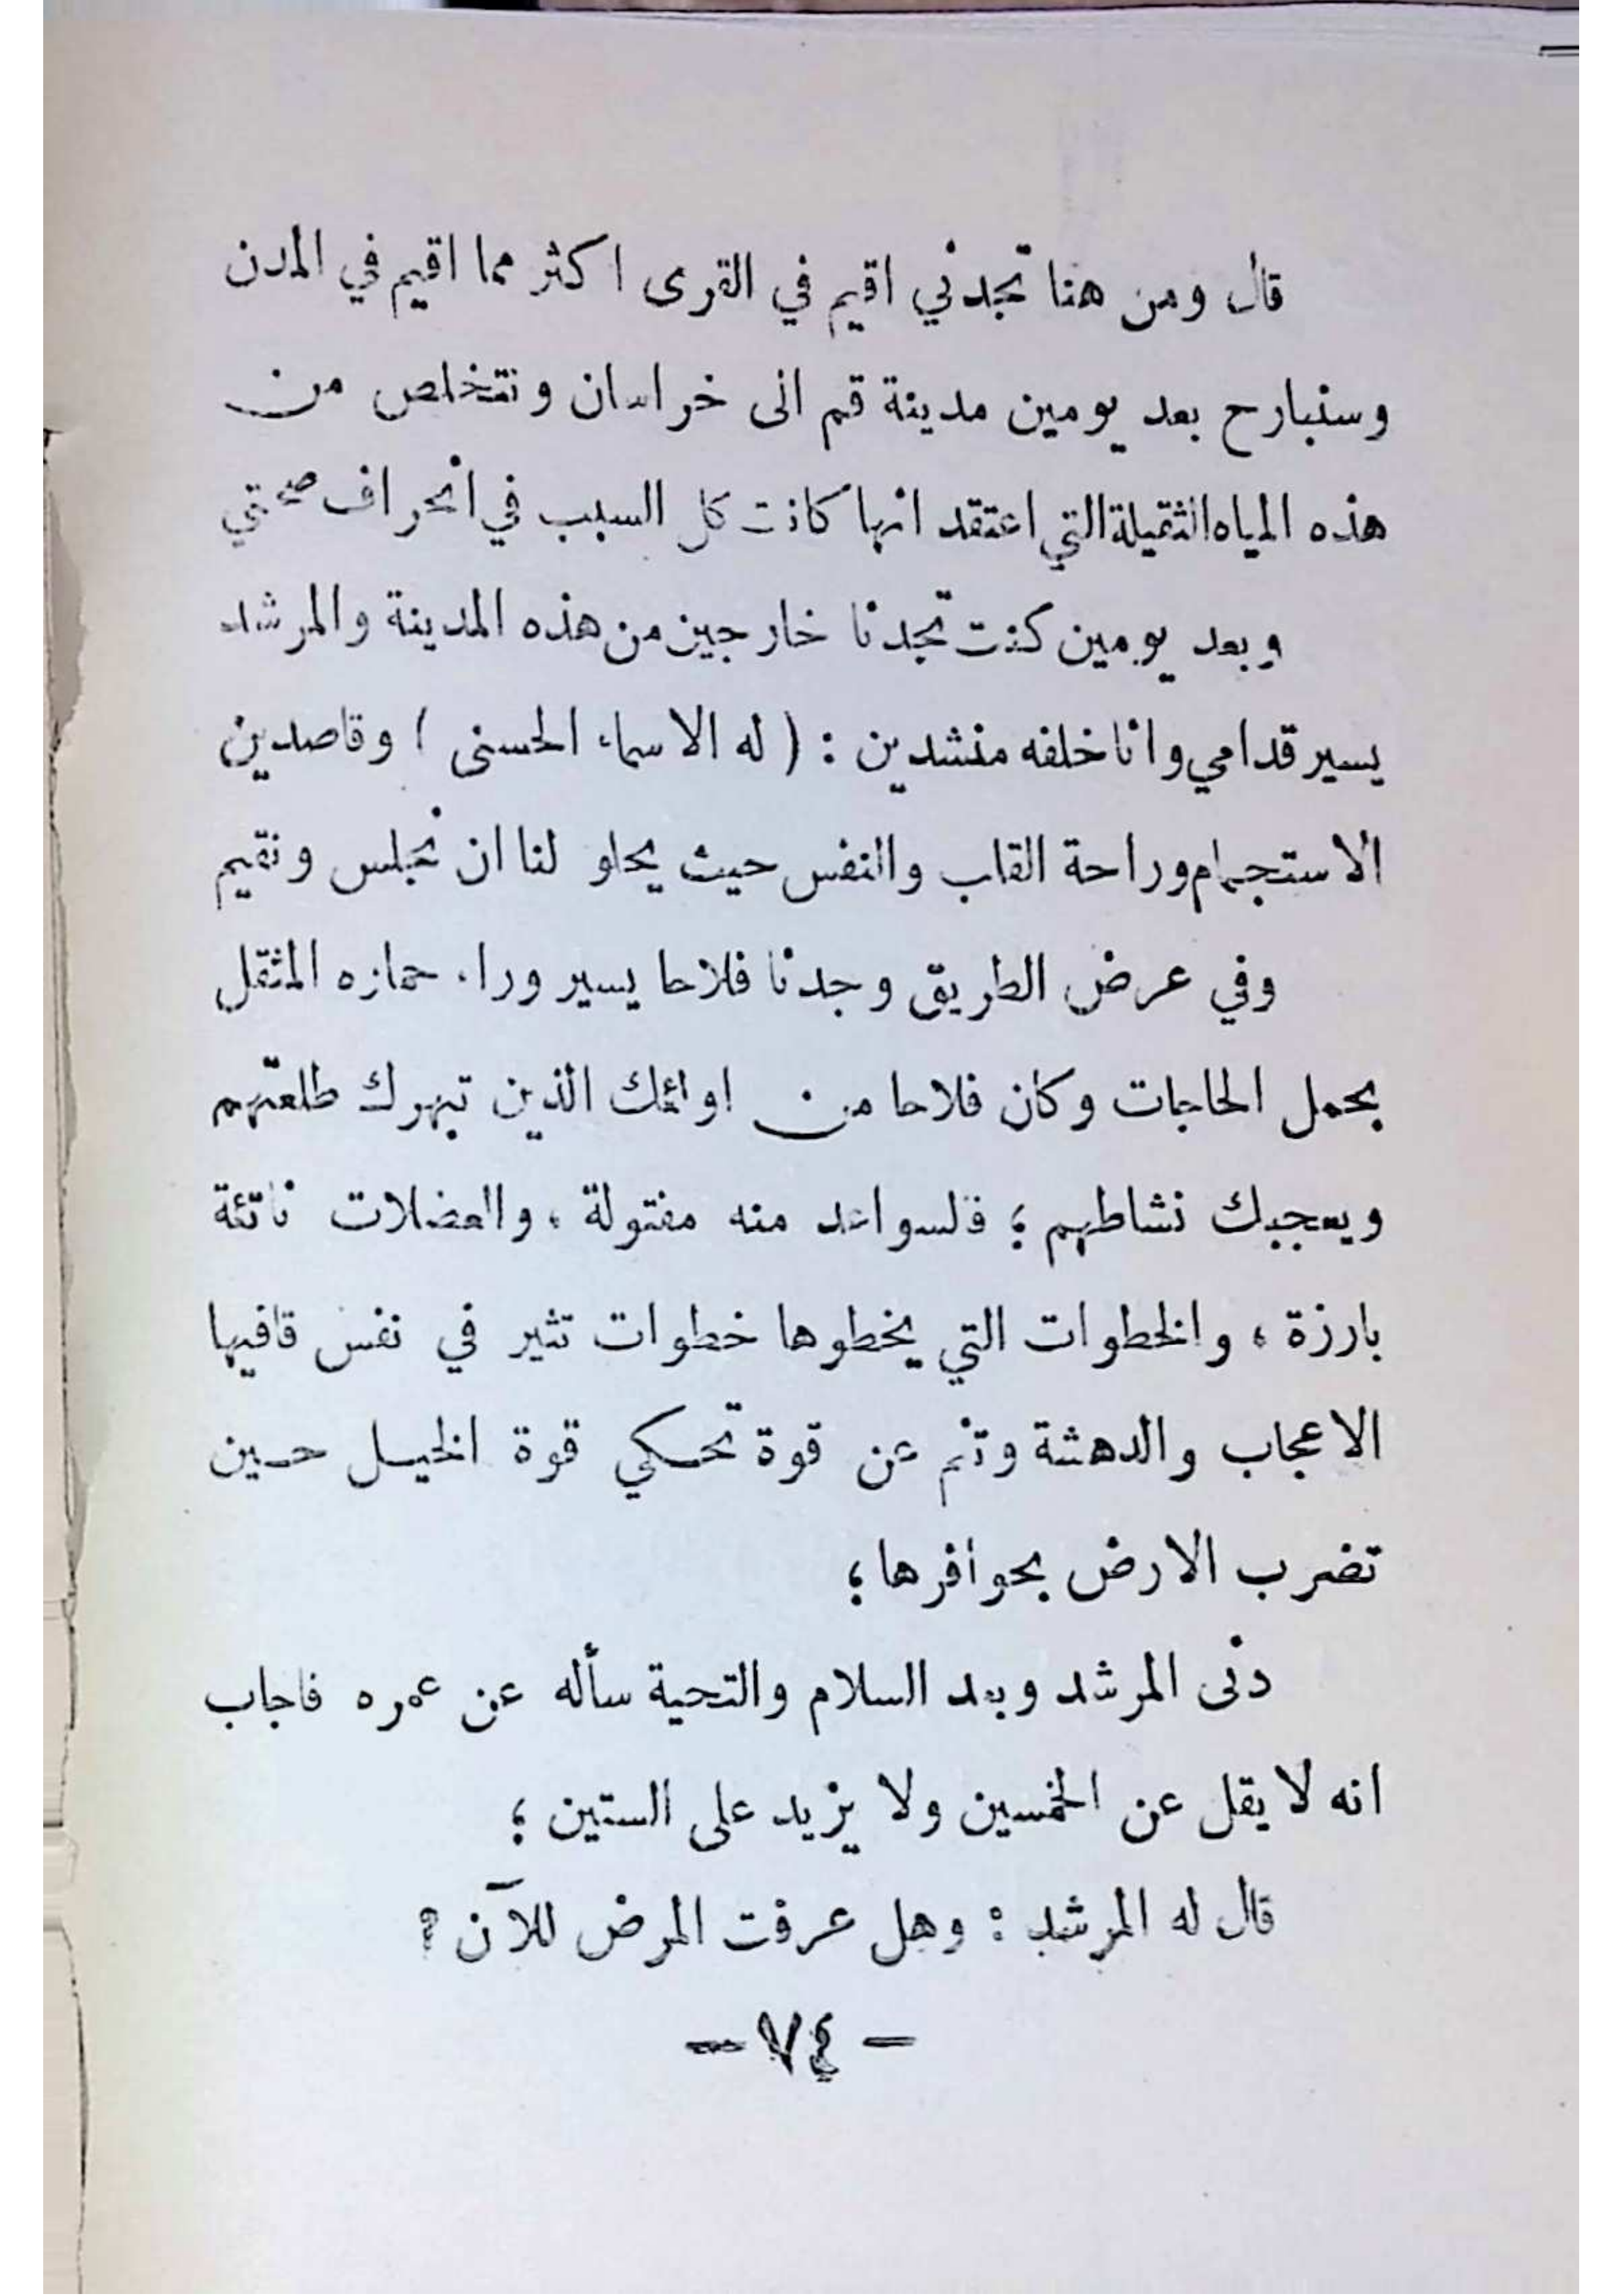 قال ومن هنا تجدني اقيم في القرى اكثر مما اقيم في المدن
وسنبارح بعد يومين مدينة قم الى خراسان ونتخلص من
هذه المياه الثقيلة التي اعتقد انها كانت كل السبب في انحراف صحتي
وبعد يومين كنت تجدنا خارجين من هذه المدينة والمرشد
يسير قدامي وانا خلفه منشدين : ( له الاسماء الحسنى ) وقاصدين
الاستجمام وراحة القلب والنفس حيث يحلو لنا ان نجلس ونقيم
وفي عرض الطريق وجدنا فلاحا يسير وراء حماره المثقل
بحمل الحاجات وكان فلاحا من اولئك الذين تبهرك طلعتهم
ويعجبك نشاطهم ؛ فالسواعد منه مفتولة ، والعضلات ناتئة
بارزة ، والخطوات التي يخطوها خطوات تثير في نفس قافيها
الاعجاب والدهشة وتنم عن قوة تحكي قوة الخيل حين
تضرب الارض بحوافرها ؛
دنى المرشد وبعد السلام والتحية سأله عن عمره فاجاب
انه لا يقل عن الخمسين ولا يزيد على الستين ؛
قال له المرشد : وهل عرفت المرض للآن ؟
— ٧٤ —